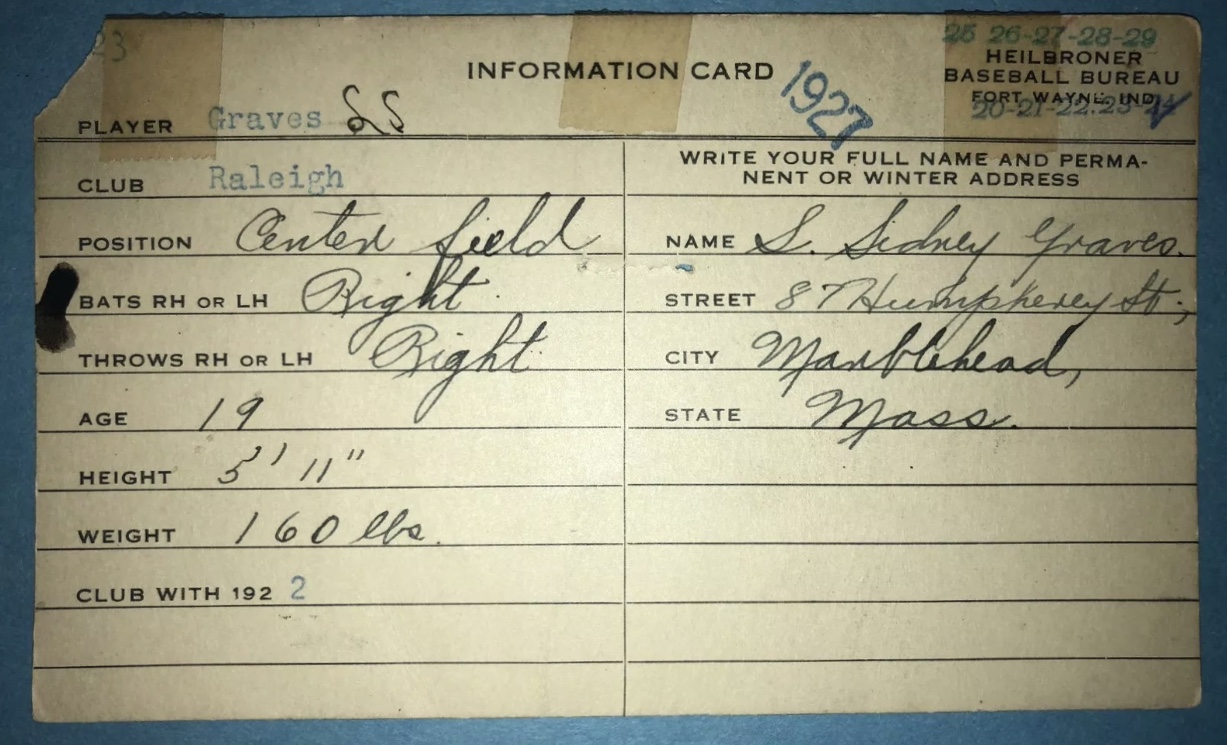 23
25 26-27-28-29
INFORMATION CARD
1927
HEILBRONER
BASEBALL BUREAU
FORT WAYNE, IND.
20-21-22-23-24
PLAYER Graves SS
CLUB Raleigh
POSITION Center field
BATS RH OR LH Right
THROWS RH OR LH Right
AGE 19
HEIGHT 5' 11"
WEIGHT 160 lbs.
CLUB WITH 192 2
WRITE YOUR FULL NAME AND PERMA-
NENT OR WINTER ADDRESS
NAME S. Sidney Graves.
STREET 87 Humpherey St.,
CITY Marblehead,
STATE Mass.